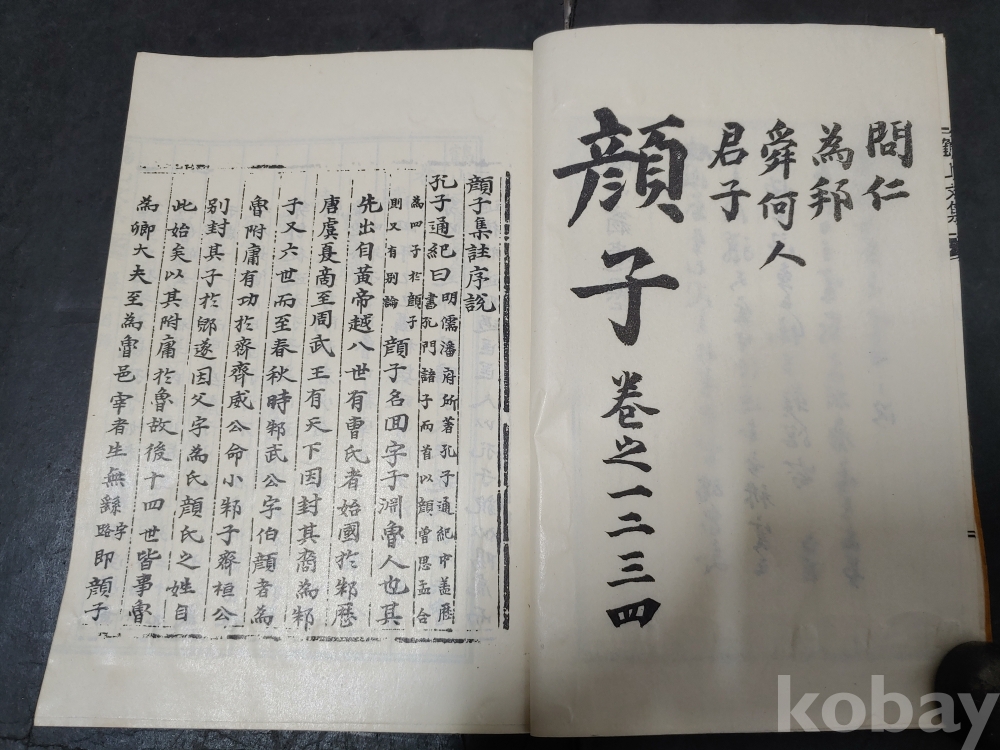 問仁
為邦
舜何人
君子
顔子 卷之一二三四
顔子集註序說
孔子通紀曰明儒潘府所著孔子通紀中蓋歷
書孔門諸子而首以顔曾思孟合
為四子於顔子
則又有别論顔子名回字子淵魯人也其
先出自黃帝越八世有曹氏者始國於邾歷
唐虞夏商至周武王有天下因封其裔為邾
子又六世而至春秋時邾武公字伯顔者為
魯附庸有功於齊齊威公命小邾子齊桓公
别封其子於郳遂因父字為氏顔氏之姓自
此始矣以其附庸於魯故後十四世皆事魯
為卿大夫至為魯邑宰者生無繇字路即顔子
kobay